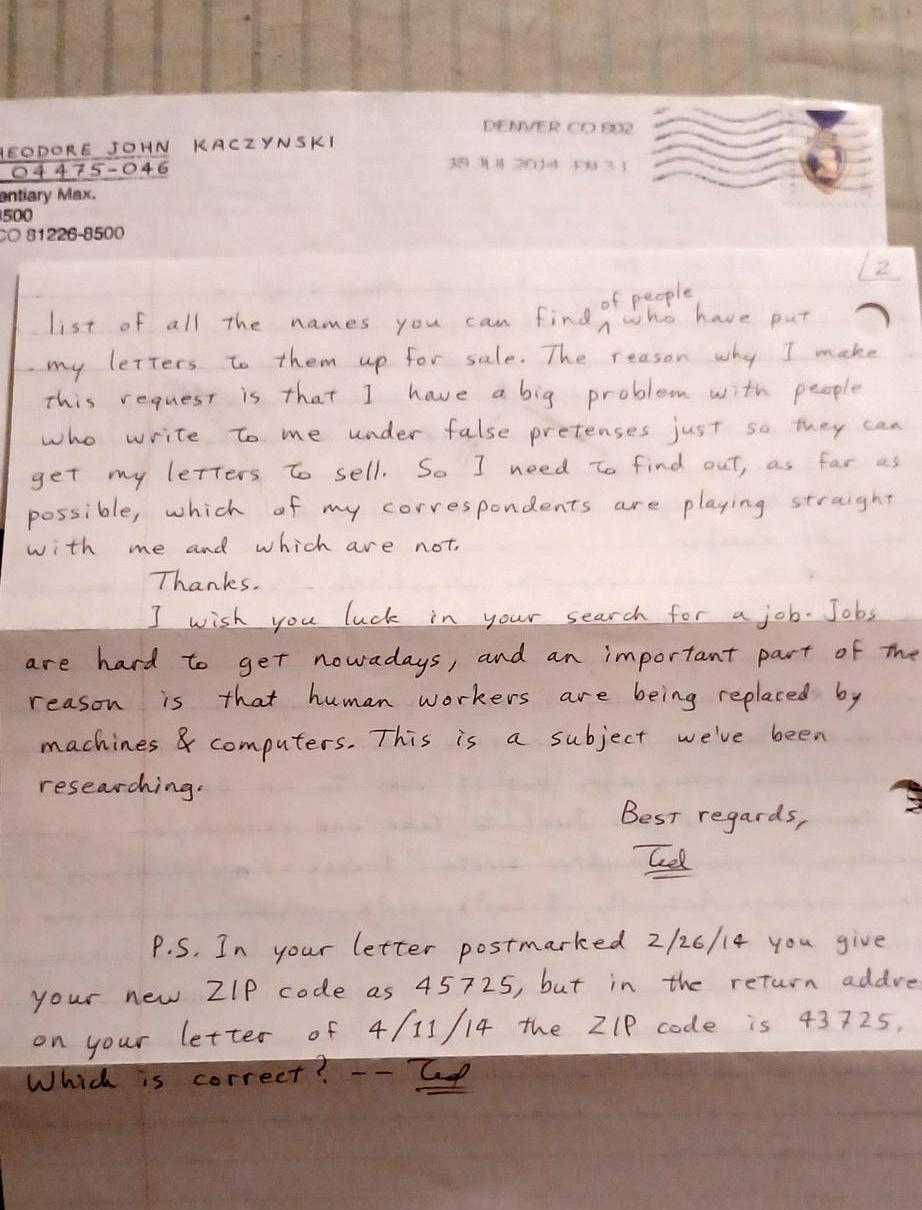 HEODORE JOHN KACZYNSKI
04475-046
entiary Max.
8500
CO 81226-8500
DENVER CO 802
18 JUL 2014 PM 3 1
2
list of all the names you can find of people who have put
my letters to them up for sale. The reason why I make
this request is that I have a big problem with people
who write to me under false pretenses just so they can
get my letters to sell. So I need to find out, as far as
possible, which of my correspondents are playing straight
with me and which are not.
Thanks.
I wish you luck in your search for a job. Jobs
are hard to get nowadays, and an important part of the
reason is that human workers are being replaced by
machines & computers. This is a subject we've been
researching.
Best regards,
Ted
P.S. In your letter postmarked 2/26/14 you give
your new ZIP code as 45725, but in the return addre
on your letter of 4/11/14 the ZIP code is 43725.
Which is correct? -- Ted